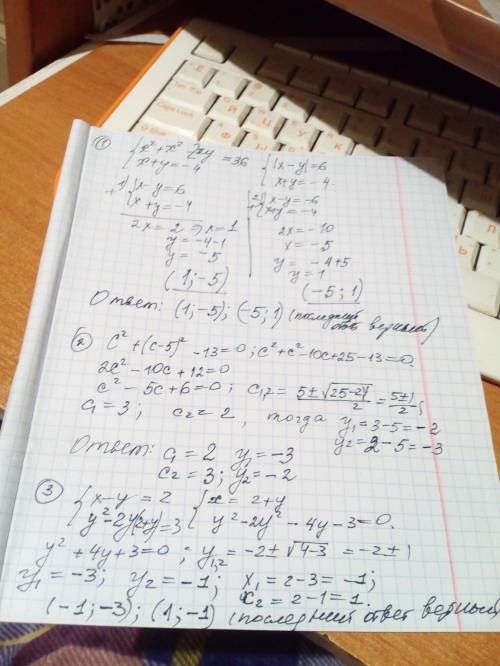 ① { x² + x² 2xy = 36   { |x-y| = 6
x+y = -4   x+y = -4
1) { x-y = 6   2) { x-y = -6
+ { x+y = -4   + { x+y = -4
2x = 2 ⇒ x = 1   2x = -10
y = -4-1   x = -5
y = -5   y = -4+5
y = 1
(1; -5)   (-5; 1)
Ответ: (1; -5); (-5; 1) (последний ответ верный)
② c² + (c-5)² - 13 = 0; c² + c² - 10c + 25 - 13 = 0.
2c² - 10c + 12 = 0
c² - 5c + 6 = 0; c₁,₂ = (5 ± √25-24)/2 = (5±1)/2;
c₁ = 3; c₂ = 2, тогда y₁ = 3-5 = -2
y₂ = 2-5 = -3
Ответ: c₁ = 2 y₁ = -3
c₂ = 3; y₂ = -2
③ { x-y = 2   { x = 2+y
y² - 2y(2+y) = 3   y² - 2y² - 4y - 3 = 0.
y² + 4y + 3 = 0; y₁,₂ = -2 ± √4-3 = -2 ± 1
y₁ = -3; y₂ = -1; x₁ = 2-3 = -1;
x₂ = 2-1 = 1.
(-1; -3); (1; -1) (последний ответ верный